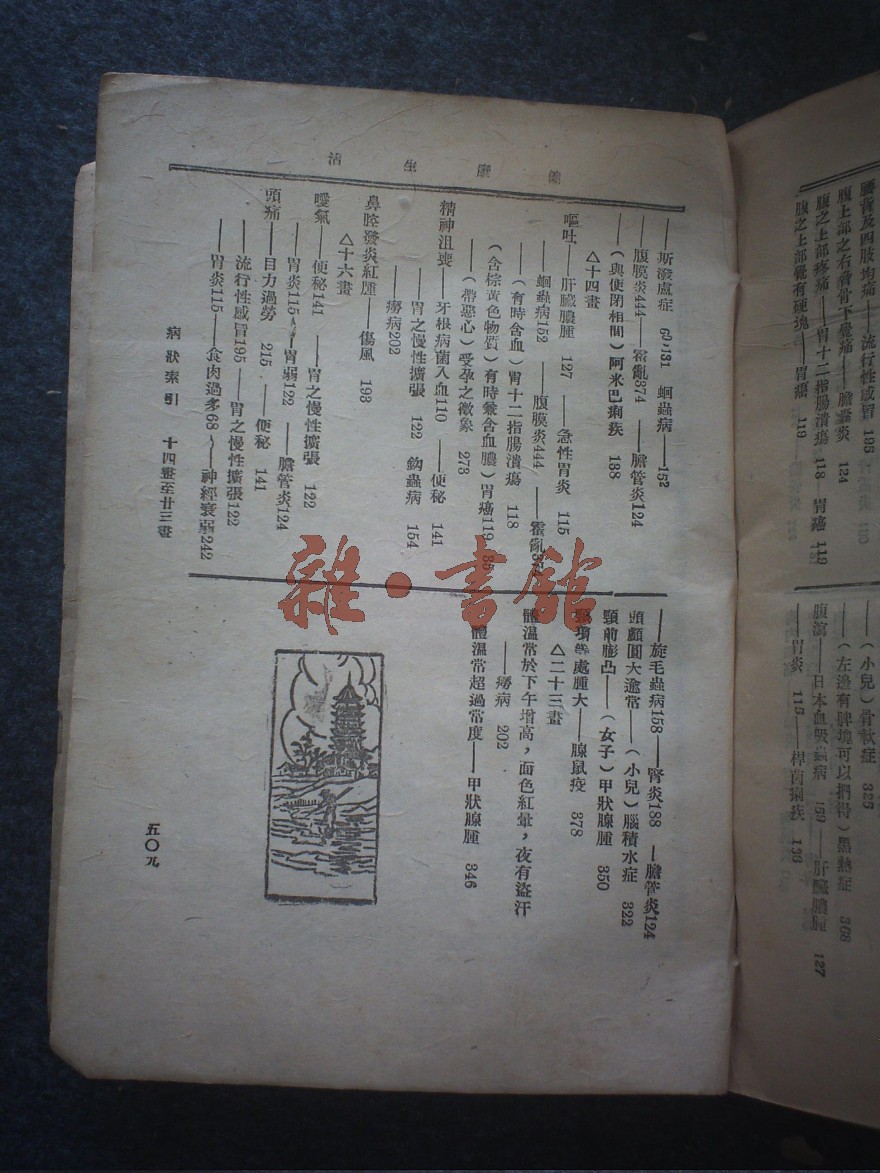 腰背及四肢均痛——流行性感冒 195
腹上部之右脅骨下覺痛——膽囊炎 124
腹之上部疼痛——胃十二指腸潰瘍 118 胃癌 119
腹之上部覺有硬塊——胃癌 119
——(小兒)骨軟症 325
——(左邊有脾塊可以捫得)黑熱症 368
腹瀉——日本血吸蟲病 159——肝臟膿腫 127
——胃炎 115——桿菌痢疾 138
健康生活
——斯潑盧症 60,131 蛔蟲病——152
——腹膜炎444——霍亂374——膽管炎124
——(與便閉相間)阿米巴痢疾 138
△十四畫
嘔吐——肝臟膿腫 127——急性胃炎 115
——蛔蟲病152——腹膜炎444——霍亂374
——(有時含血)胃十二指腸潰瘍 118
(含棕黃色物質)有時兼含血膿)胃癌119
——(帶惡心)受孕之徵象 273
精神沮喪——牙根病菌入血110——便秘 141
——胃之慢性擴張 122 鈎蟲病 154
——癆病202
鼻腔發炎紅腫——傷風 193
△十六畫
噯氣——便秘141——胃之慢性擴張 122
——胃炎115——胃弱122——膽管炎124
頭痛——目力過勞 215——便秘 141
——流行性感冒195——胃之慢性擴張122
——胃炎115——食肉過多68——神經衰弱242
——旋毛蟲病158——腎炎188——膽管炎124
頭顱圓大逾常——(小兒)腦積水症 322
頸前膨凸——(女子)甲狀腺腫 350
頸項等處腫大——腺鼠疫 378
△二十三畫
體溫常於下午增高,面色紅暈,夜有盜汗
——癆病 202
體溫常超過常度——甲狀腺腫 346
病狀索引 十四畫至廿三畫
五〇九
雜·書館